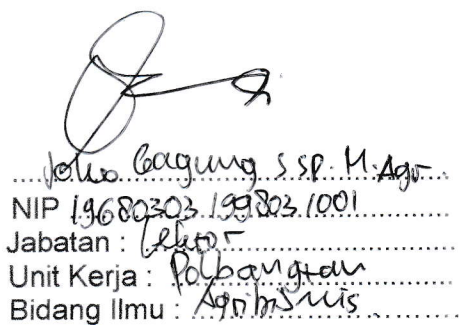 Joko Gagung S SP. M. Agr.
NIP 19680303 199803 1001
Jabatan : Lektor
Unit Kerja : Polbangtan
Bidang Ilmu : Agribisnis